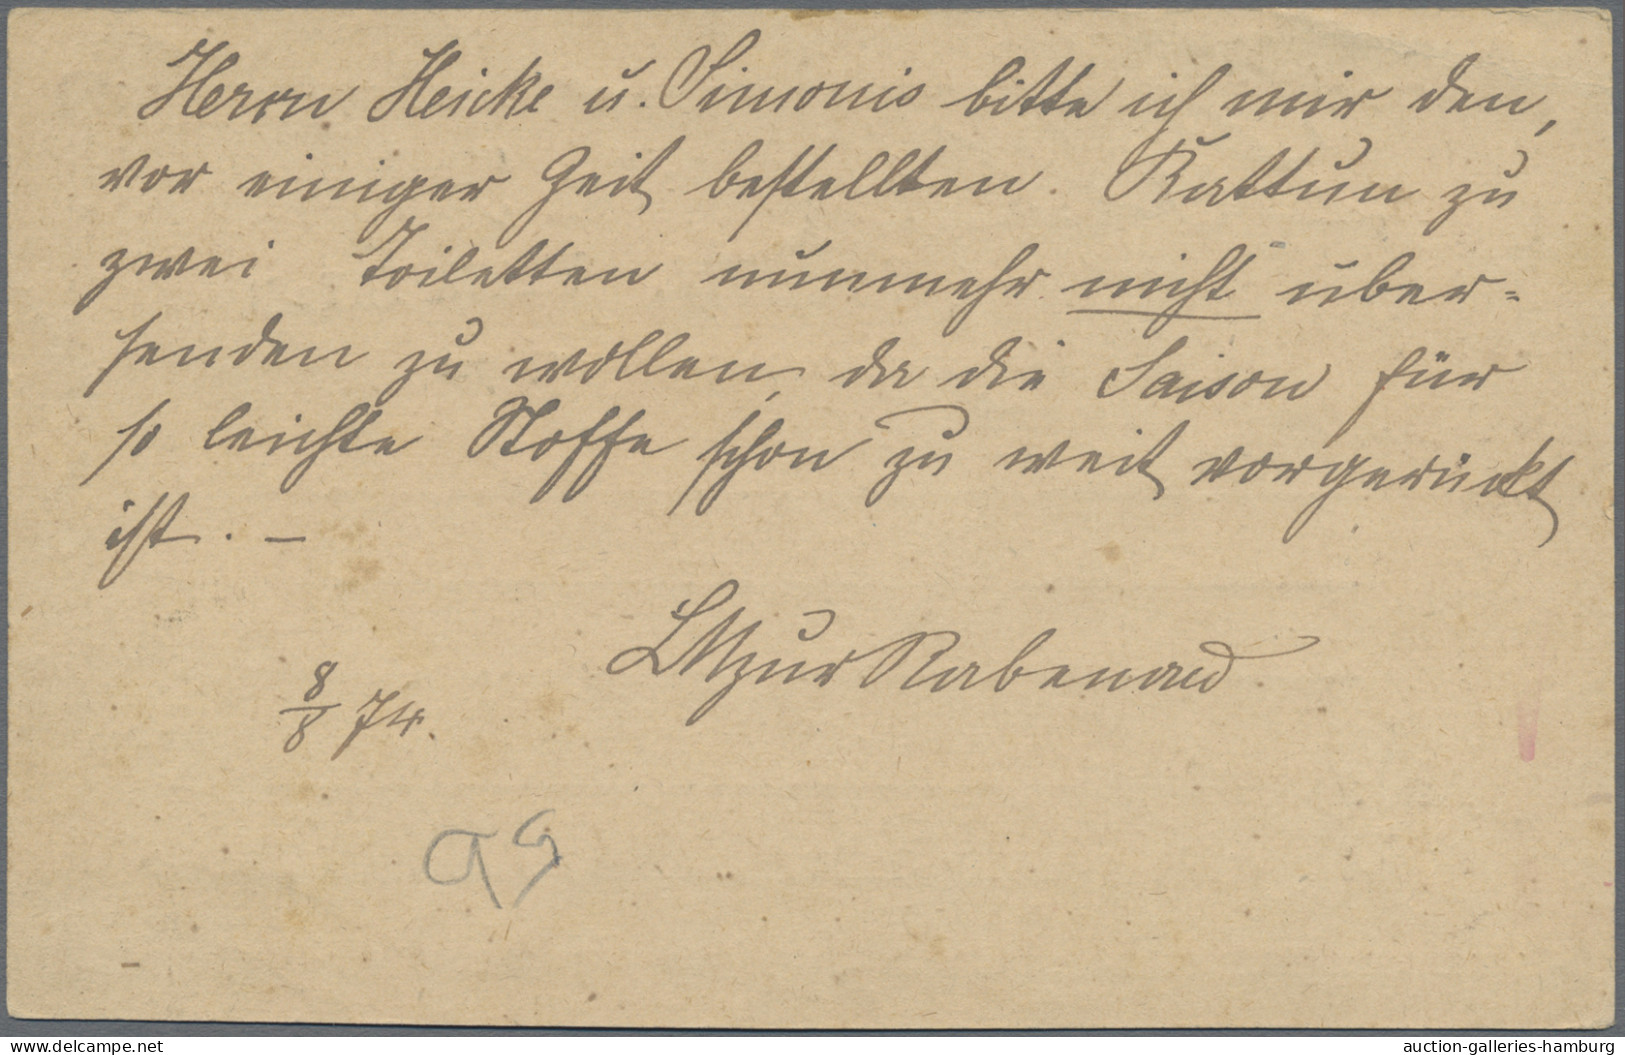 Herrn Heicke u. Simonis bitte ich mir den,
vor einiger Zeit bestellten Kattun zu
zwei Toiletten nunmehr nicht über-
senden zu wollen, da die Saison für
so leichte Stoffe schon zu weit vorgerückt
ist. —
zur Rabenau
8/8 74.
delcampe.net
auction-galleries-hamburg